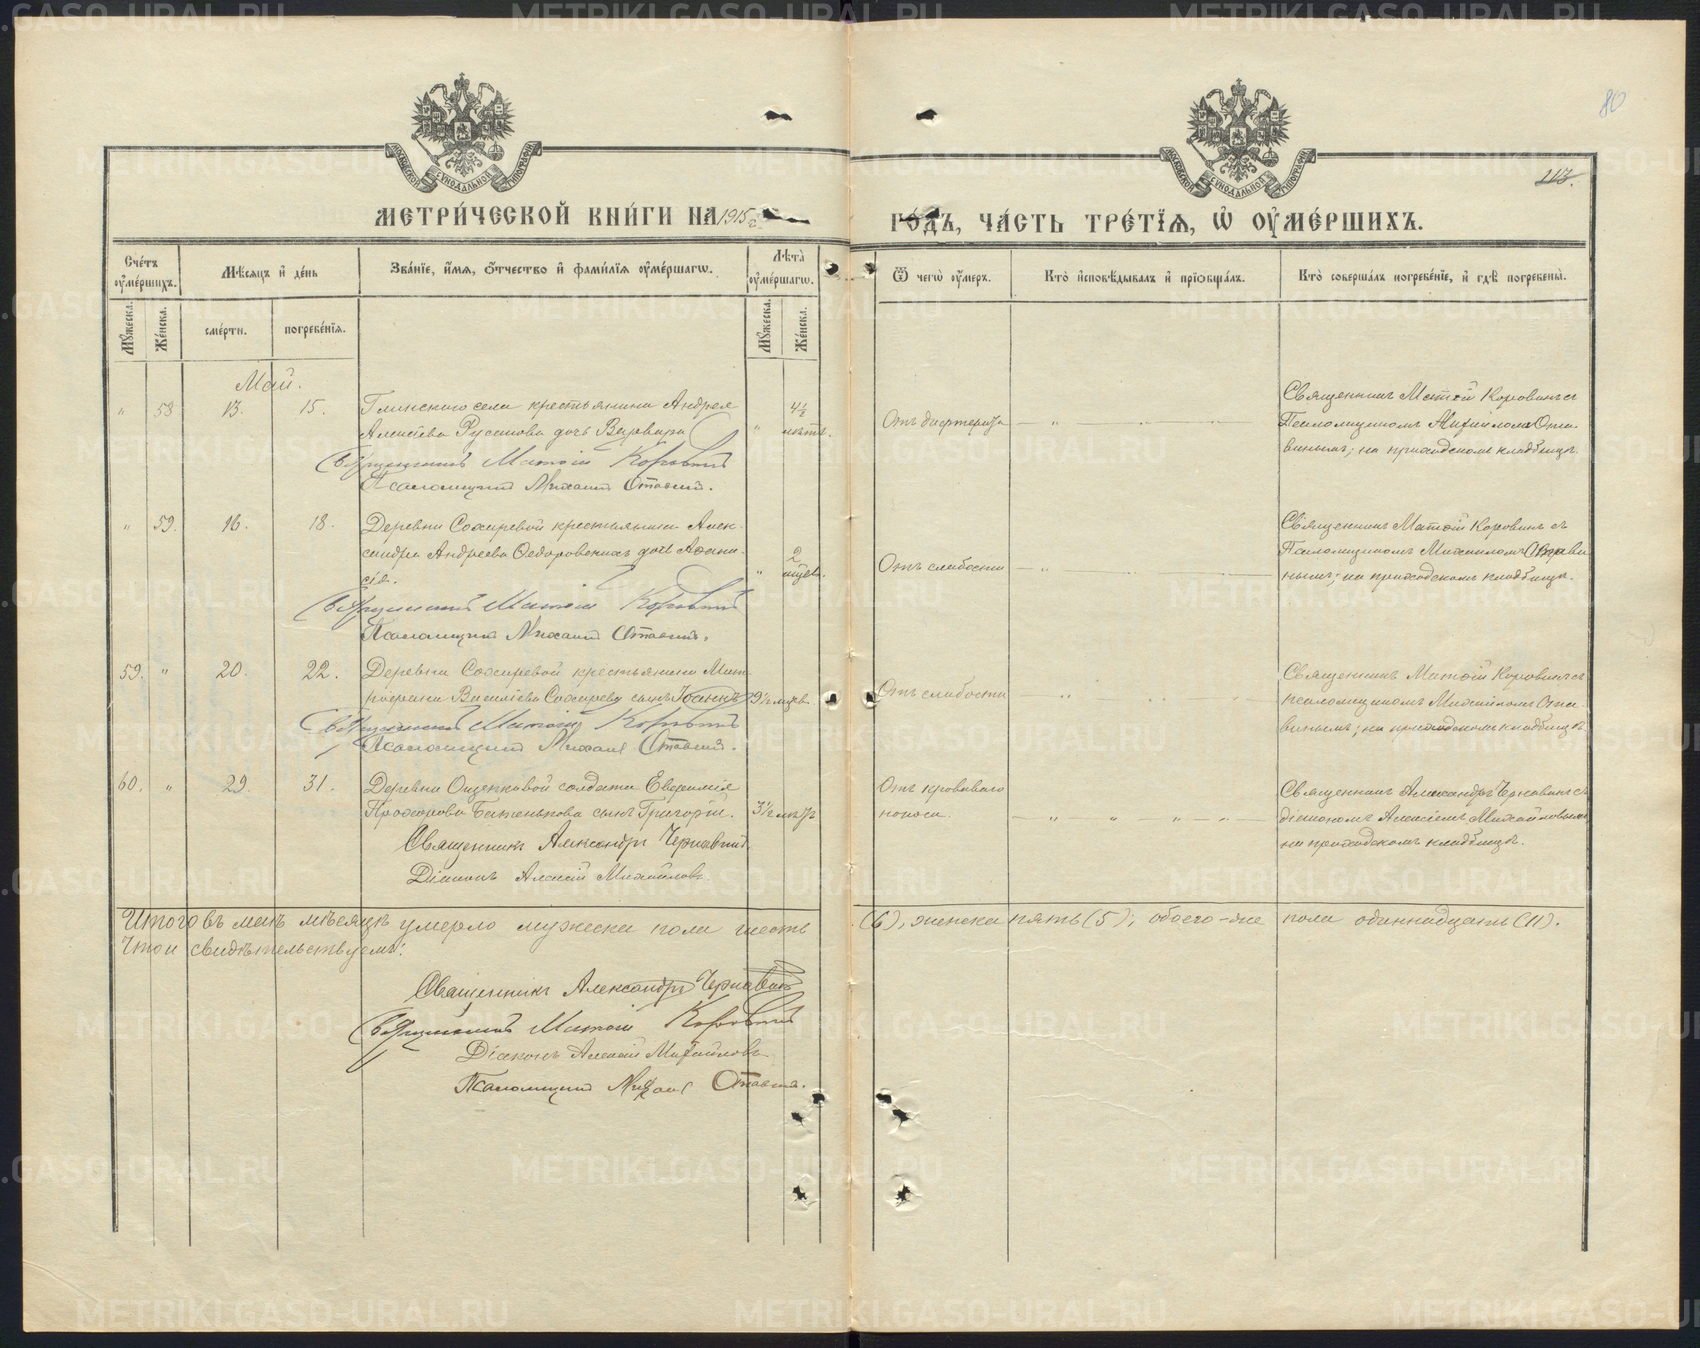 80
113.
МОСКОВСКОЙ СѴНОДАЛЬНОЙ ТИПОГРАФІИ
МОСКОВСКОЙ СѴНОДАЛЬНОЙ ТИПОГРАФІИ
МЕТРИ́ЧЕСКОЙ КНИ́ГИ НА 1915 г. ГО́ДЪ, ЧА́СТЬ ТРЕ́ТЇѦ, Ѡ҆ ОУ҆МЕ́РШИХЪ.
Сче́тъ оу҆ме́ршихъ.
Мꙋ́жеска.
Же́нска.
Мѣ́сѧцъ и҆ де́нь
сме́рти.
погребе́нїѧ.
Зва́нїе, и҆́мѧ, ѻ҆́тчество и҆ фами́лїѧ оу҆ме́ршагѡ.
Лѣ́та̀ оу҆ме́ршагѡ.
Мꙋ́жеска.
Же́нска.
Ѿ чегѡ̀ оу҆́меръ.
Кто̀ и҆сповѣ́дывалъ и҆ прїѡбща́лъ.
Кто̀ соверша́лъ погребе́нїе, и҆ гдѣ̀ погребены̀.
Май.
" 58 13. 15. Глинскаго села крестьянина Андрея
Алексіева Русанова дочь Варвара " 4½ лѣтъ.
Священникъ Матѳій Коровинъ
Псаломщикъ Михаилъ Отавинъ.
Отъ дифтерита — " — " —
Священникъ Матѳій Коровинъ съ
Псаломщикомъ Михаиломъ Ота-
винымъ; на приходскомъ кладбищѣ.
" 59. 16. 18. Деревни Сохаревой крестьянина Алек-
сандра Андреева Ѳедоровскихъ дочь Аѳана-
сія. " 2 мѣсяц.
Священникъ Матѳій Коровинъ
Псаломщикъ Михаилъ Отавинъ.
Отъ слабости — " —
Священникъ Матѳій Коровинъ съ
Псаломщикомъ Михаиломъ Отави-
нымъ; на приходскомъ кладбищѣ.
59. " 20. 22. Деревни Сохаревой крестьянина Мит-
рофана Васильева Сохарева сынъ Іоаннъ 9½ мѣсяц.
Священникъ Матѳій Коровинъ
Псаломщикъ Михаилъ Отавинъ.
Отъ слабости — " — " —
Священникъ Матѳій Коровинъ съ
псаломщикомъ Михаиломъ Ота-
винымъ, на приходскомъ кладбищѣ.
60. " 29. 31. Деревни Ощепковой солдата Евѳимія
Прохорова Батенькова сынъ Григорій. 3½ мѣсяц
Священникъ Александръ Чернавинъ
Діаконъ Алексій Михайловъ.
Отъ кроваваго
поноса. — " — " — " — " —
Священникъ Александръ Чернавинъ съ
діакономъ Алексіемъ Михайловымъ
на приходскомъ кладбищѣ.
Итого въ маѣ мѣсяцѣ умерло мужеска пола шесть (6), женска пять (5); обоего-же пола одиннадцать (11).
Что и свидѣтельствуемъ:
Священникъ Александръ Чернавинъ
Священникъ Матѳій Коровинъ
Діаконъ Алексій Михайловъ
Псаломщикъ Михаилъ Отавинъ.
METRIKI.GASO-URAL.RU